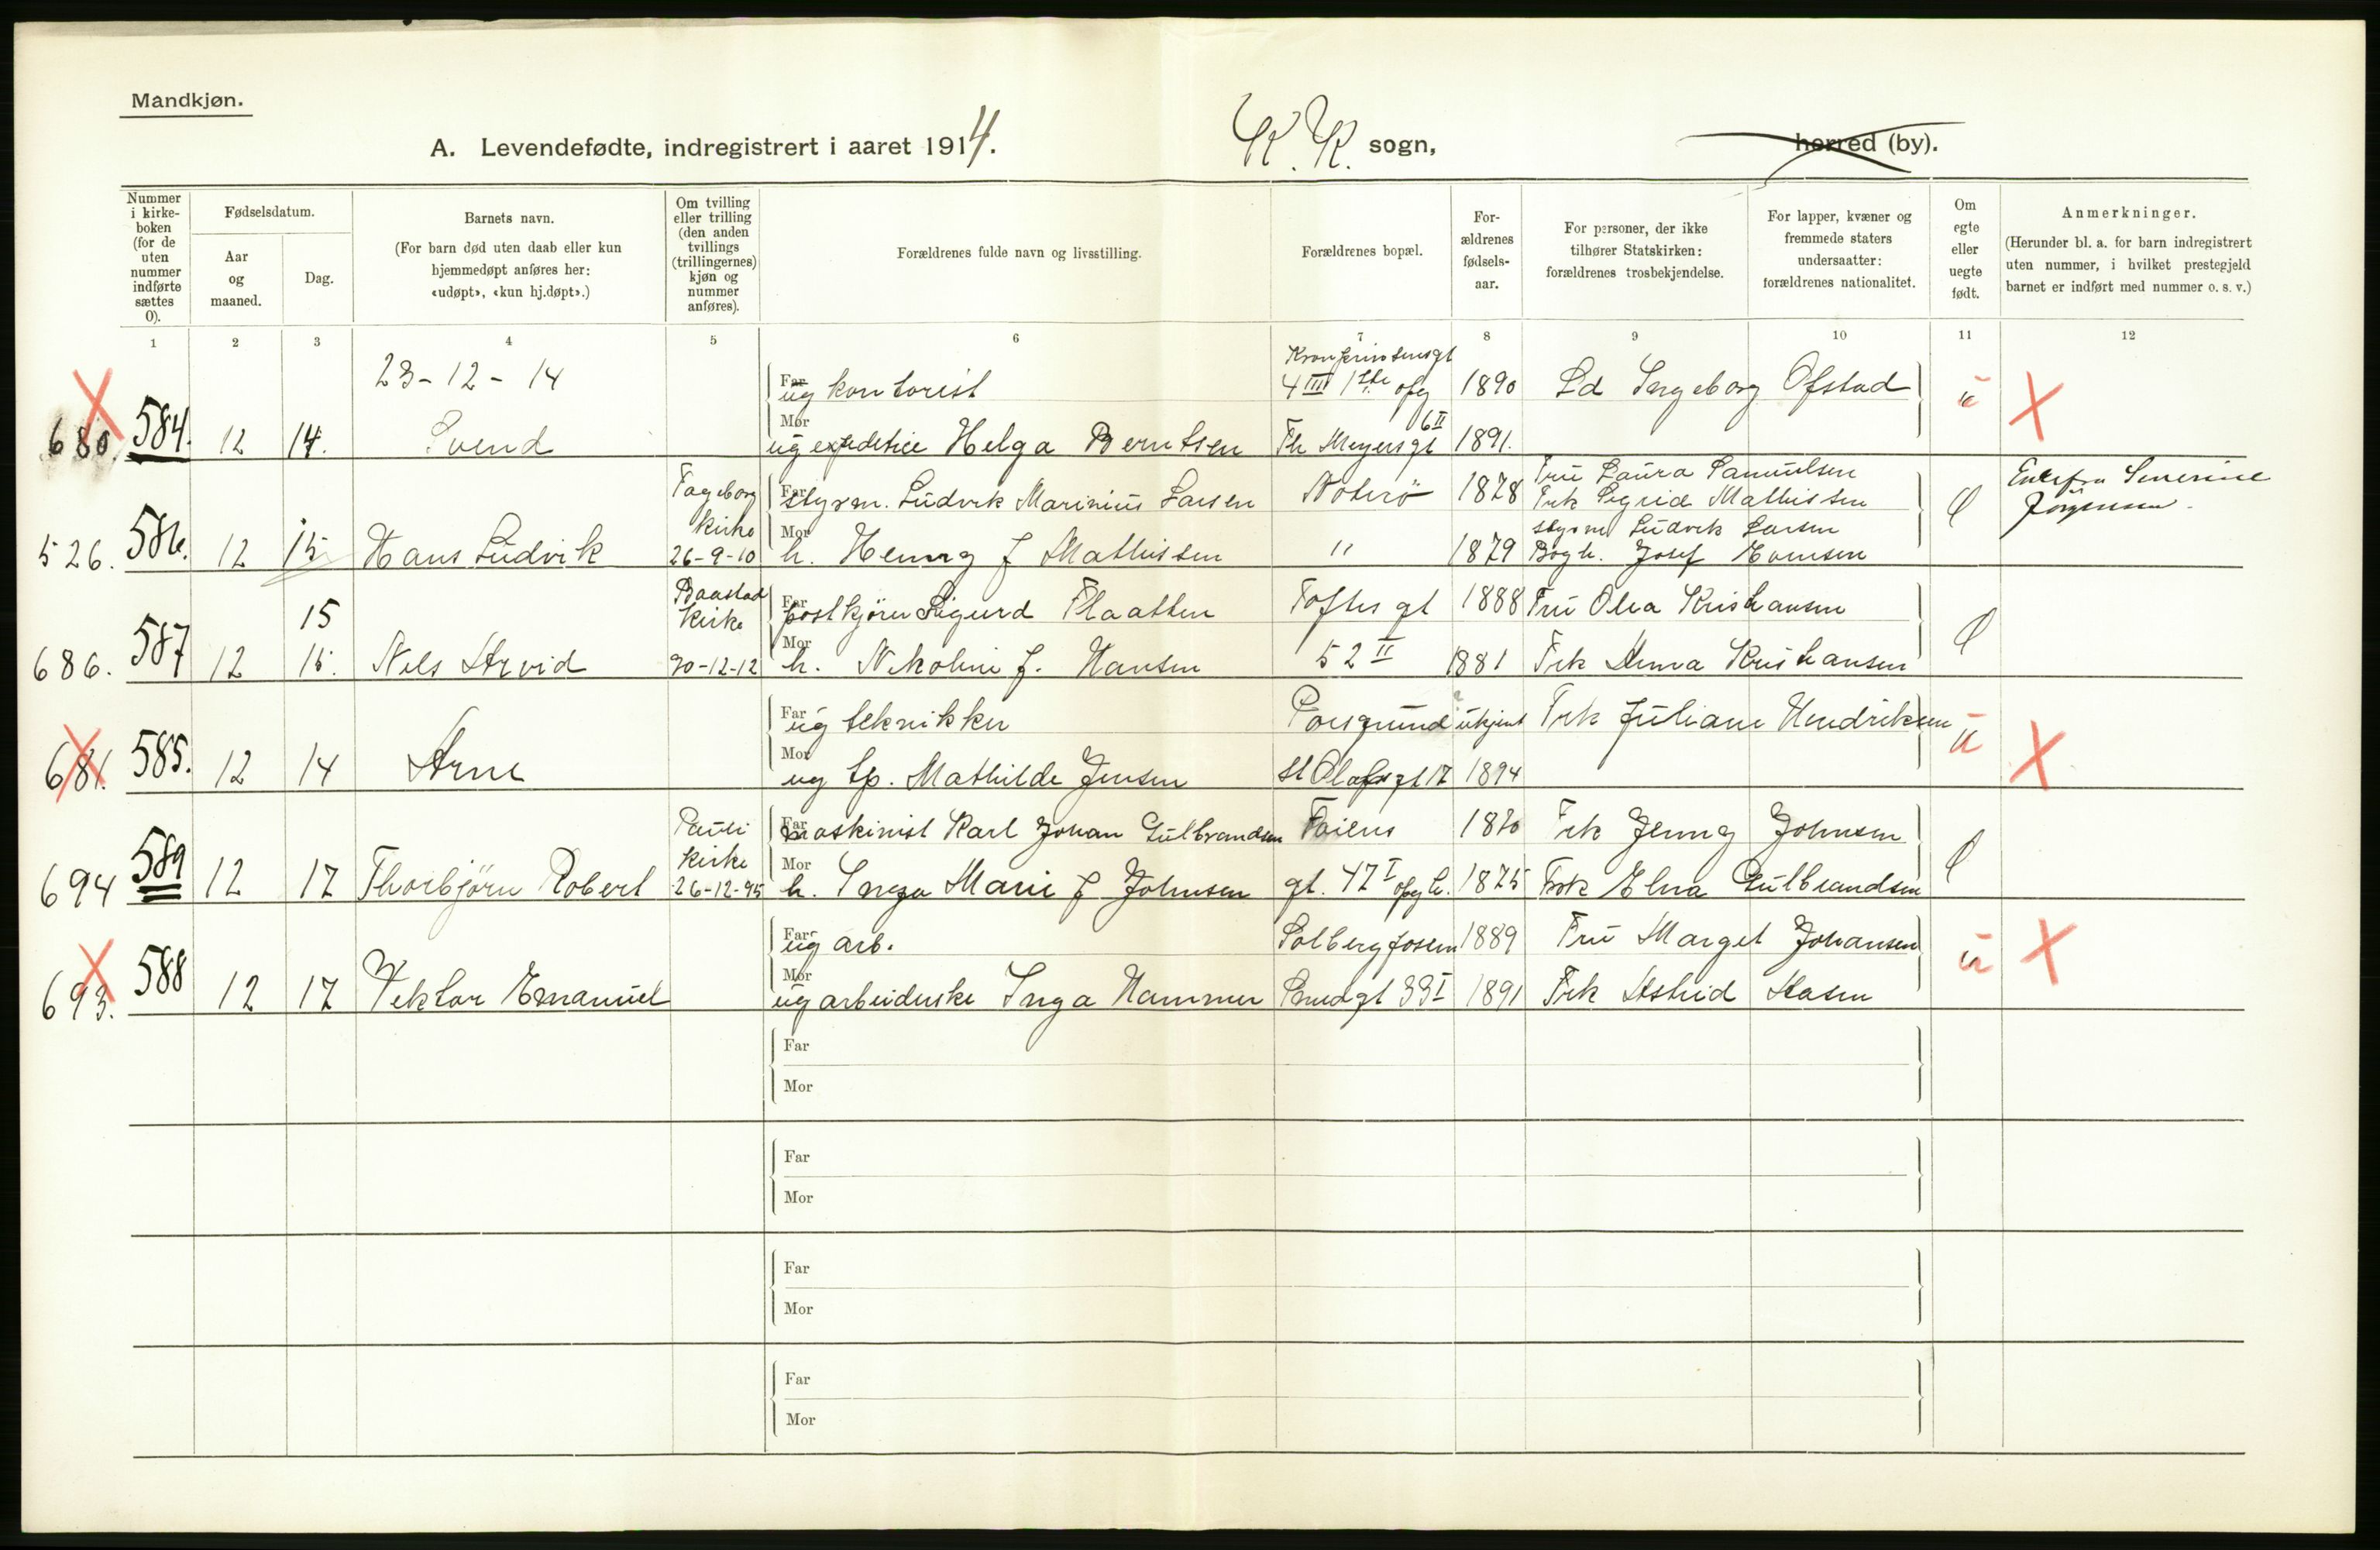 Mandkjøn.
A. Levendefødte, indregistrert i aaret 1914. K. K. sogn, herred (by).
Nummer i kirke-boken (for de uten nummer indførte sættes 0).
Fødselsdatum.
Aar og maaned.
Dag.
Barnets navn.
(For barn død uten daab eller kun hjemmedøpt anføres her: «udøpt», «kun hj.døpt».)
Om tvilling eller trilling (den anden tvillings (trillingernes) kjøn og nummer anføres).
Forældrenes fulde navn og livsstilling.
Forældrenes bopæl.
For-ældrenes fødsels-aar.
For personer, der ikke tilhører Statskirken: forældrenes trosbekjendelse.
For lapper, kvæner og fremmede staters undersaatter: forældrenes nationalitet.
Om egte eller uegte født.
Anmerkninger.
(Herunder bl. a. for barn indregistrert uten nummer, i hvilket prestegjeld barnet er indført med nummer o. s. v.)
1 2 3 4 5 6 7 8 9 10 11 12
23-12-14
Far ug kontorist Kronprinsensgt 4 III 1ste opg 1890 Ingeborg Ofstad u X
680. 584. 12 14. Svend Mor ug expeditrice Helga Berntsen Th Meyersgt 6 II 1891.
Fageborg Kirke 26-9-10
Far styrm. Ludvik Marinius Larsen Nøterö 1878 Fru Laura Samuelsen
Frk Sigrid Mathissen
Enkefru Severine Jörgensen
526. 586. 12 15 Hans Ludvik Mor h. Henny f Mathissen " 1879 styrm Ludvik Larsen
Bogh. Josef Evensen
Baastad Kirke 30-12-12
15
Far postkjører Sigurd Flaatten Toftes gt 1888 Fru Olea Kristiansen
686. 587 12 15. Nils Arvid Mor h. Nikoline f. Hansen 52 II 1881 Frk Anna Kristiansen
Far ug tekniker Porsgrund ukjent Frk Juliane Hendriksen u X
681. 585. 12 14 Arne Mor ug tp. Mathilde Jensen St Olafsgt 17 1894
Pauli Kirke 26-12-95
Far maskinist Karl Johan Gulbrandsen 1870 Frk Jenny Johnsen
694 589 12 17 Thorbjörn Robert Mor h. Inga Marie f Johnsen gt. 47 I opg h. 1875 Frk Elna Gulbrandsen
Far ug arb. Solbergfossen 1889 Fru Marget Johansen u X
693. 588 12 17 Viktor Emanuel Mor ug arbeiderske Inga Hammer Smedgt 33 I 1891 Frk Astrid
Far
Mor
Far
Mor
Far
Mor
Far
Mor